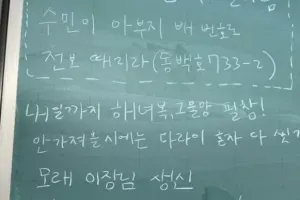 수민이 아부지 배 번호로
전보 때리라(동백호733-2)
내일까지 해녀복,그물망 필참!
안가져올시에는 다라이 혼자 다 씻기
모래 이장님 생신